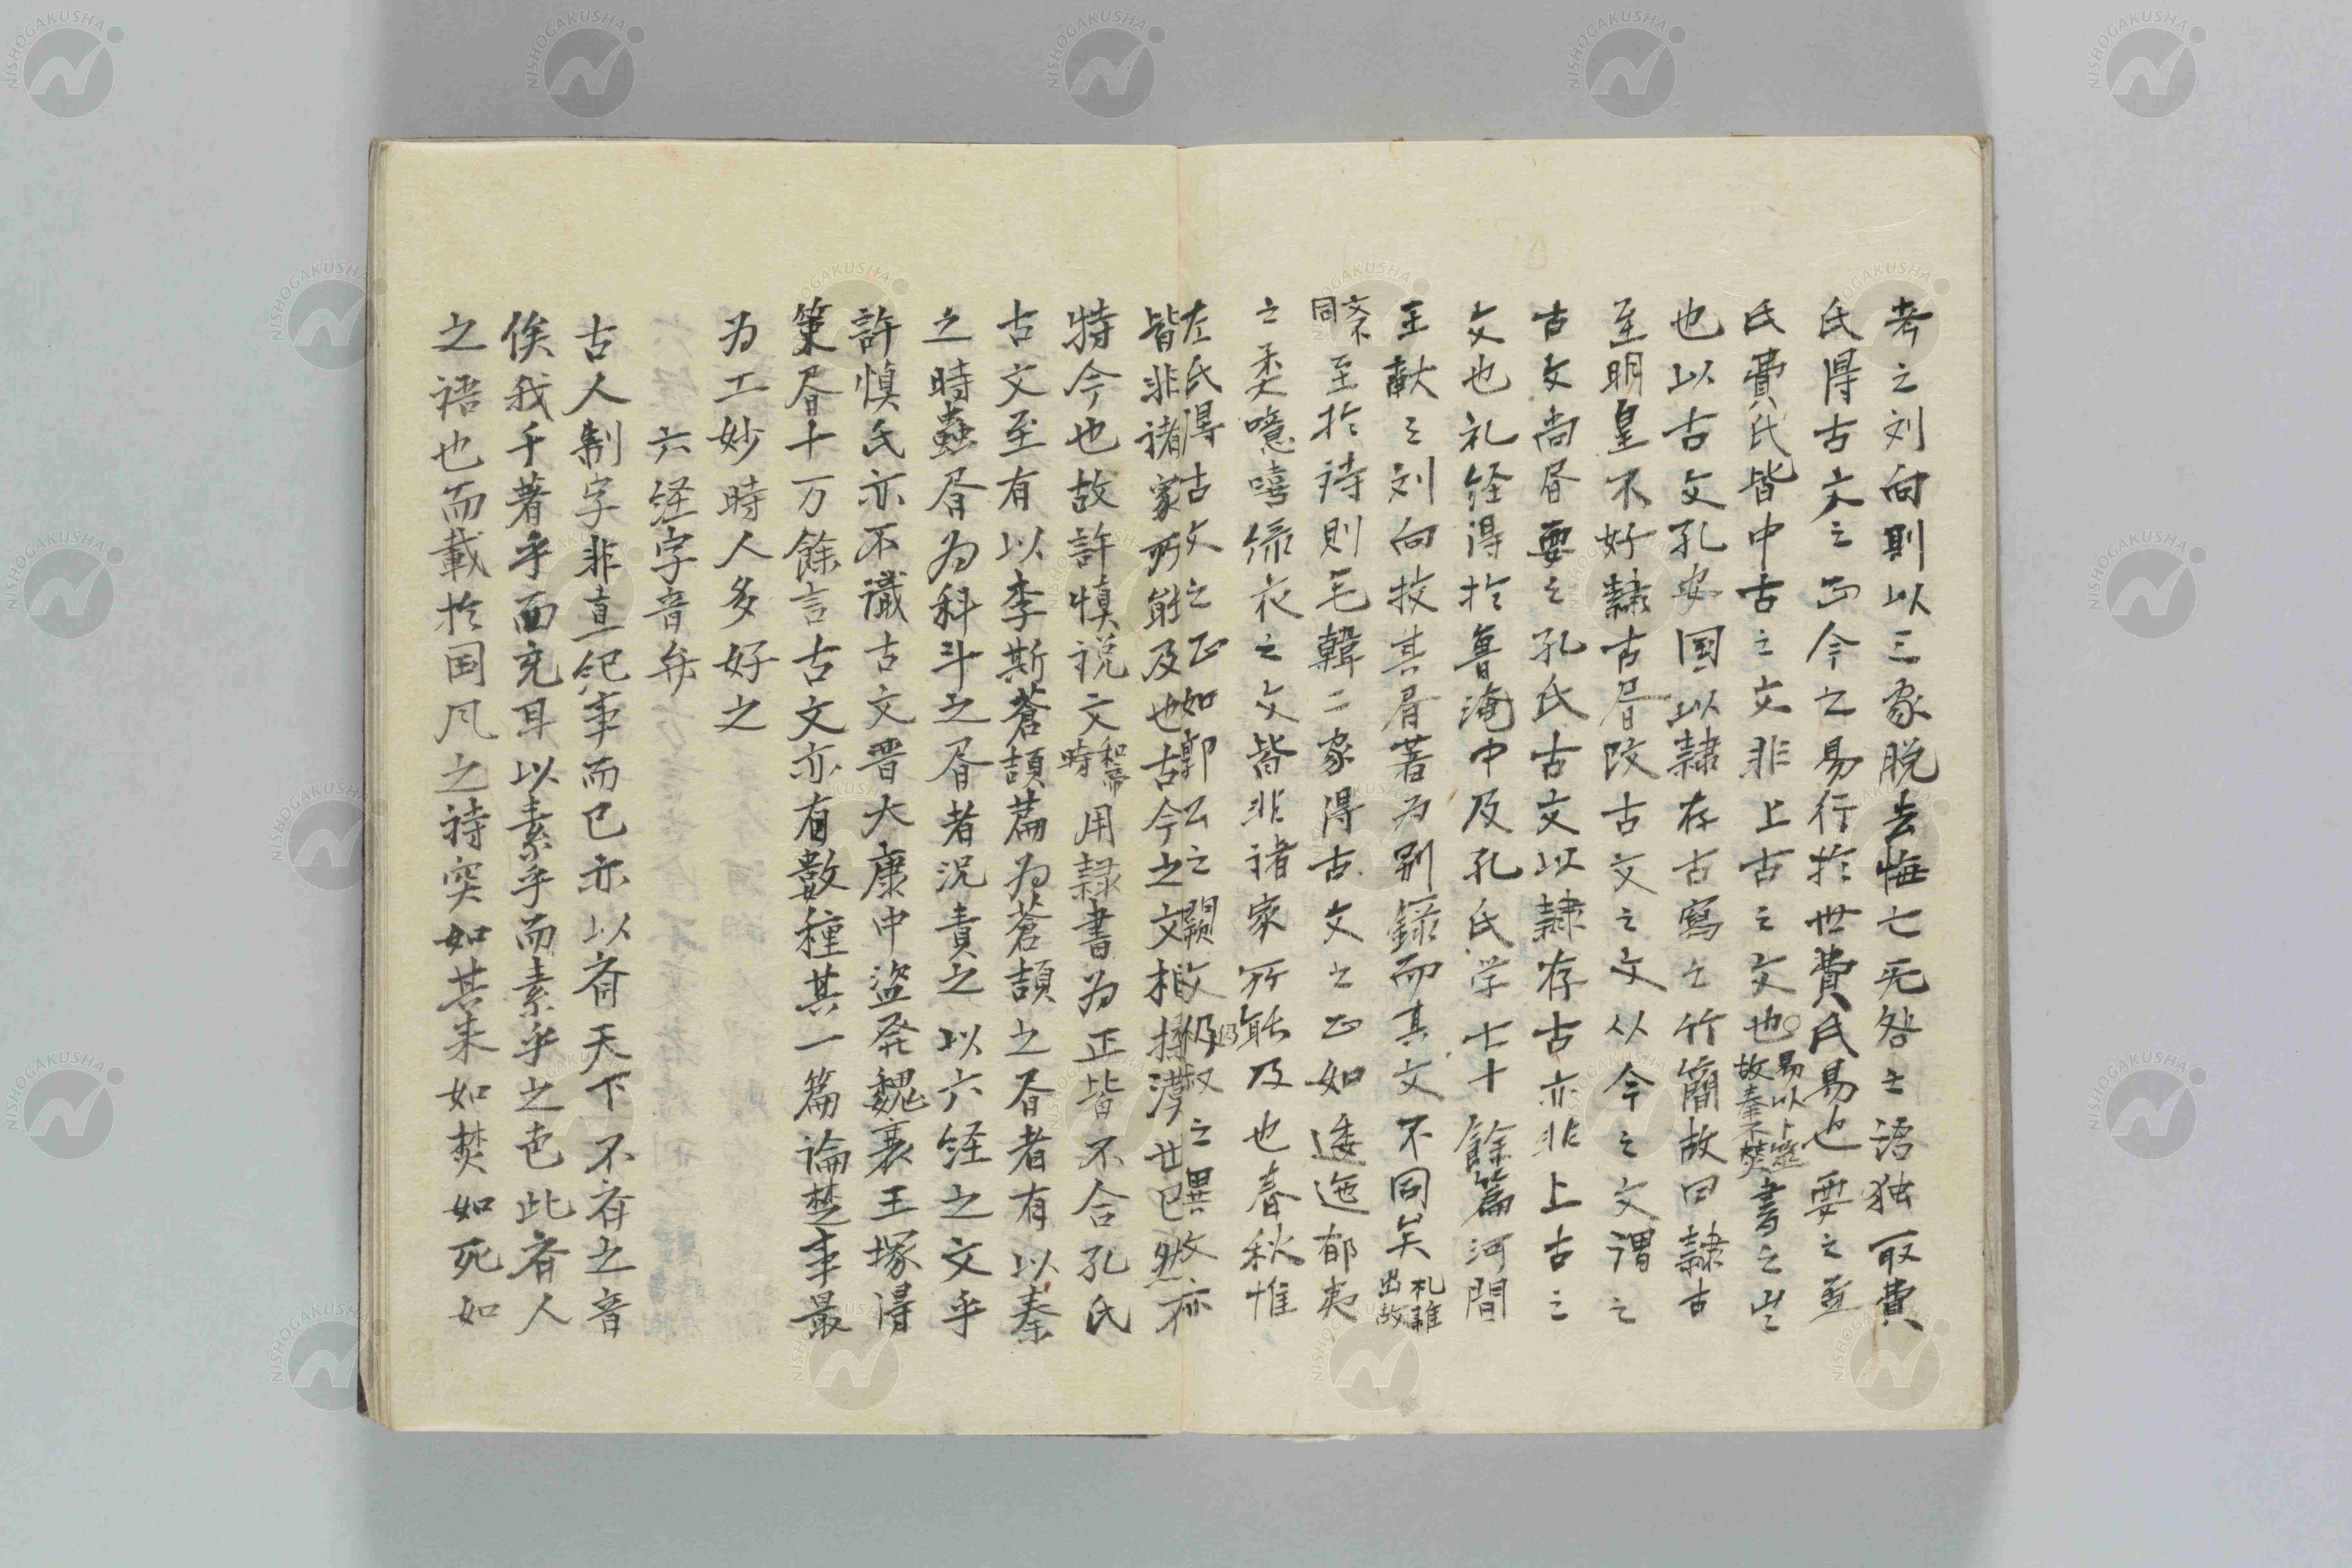 考之刘向則以三家脱去悔亡无咎之語独取費
氏得古文之正今之易行於世費氏易也要之至
氏費氏皆中古之文非上古之文也易以卜筮故秦不焚書之出
也以古文孔安国以隷存古寫之竹簡故曰隷古
至明皇不好隷古㫺改古文之文从今之文謂之
古文尚㫺要之孔氏古文以隷存古亦非上古之
文也礼経得於魯淹中及孔氏学七十餘篇河間
王献之刘向挍其㫺著为别録而其文不同矣礼雜出故
文不同至於詩則毛韓二家得古文之正如逶迤郁夷
之柔噫嘻綠衣之文皆非諸家所能及也春秋惟
左氏得古文之正如郭公之闕文仍叔之異文亦
皆非諸家所能及也古今之文相揉漢世已然
特今也故許慎説文和帝時用隷書为正皆不合孔氏
古文至有以李斯蒼頡篇为蒼頡之㫺者有以秦
之時蟲㫺为科斗之㫺者况責之以六経之文乎
許慎氏亦不識古文晋大康中盗発魏襄王塚得
策㫺十万餘言古文亦有數種其一篇論楚事最
为工妙時人多好之
六経字音弁
古人制字非直紀事而已亦以斉天下不斉之音
俟我于著乎而充耳以素乎而素乎之也此斉人
之語也而載於国风之詩突如其来如焚如死如